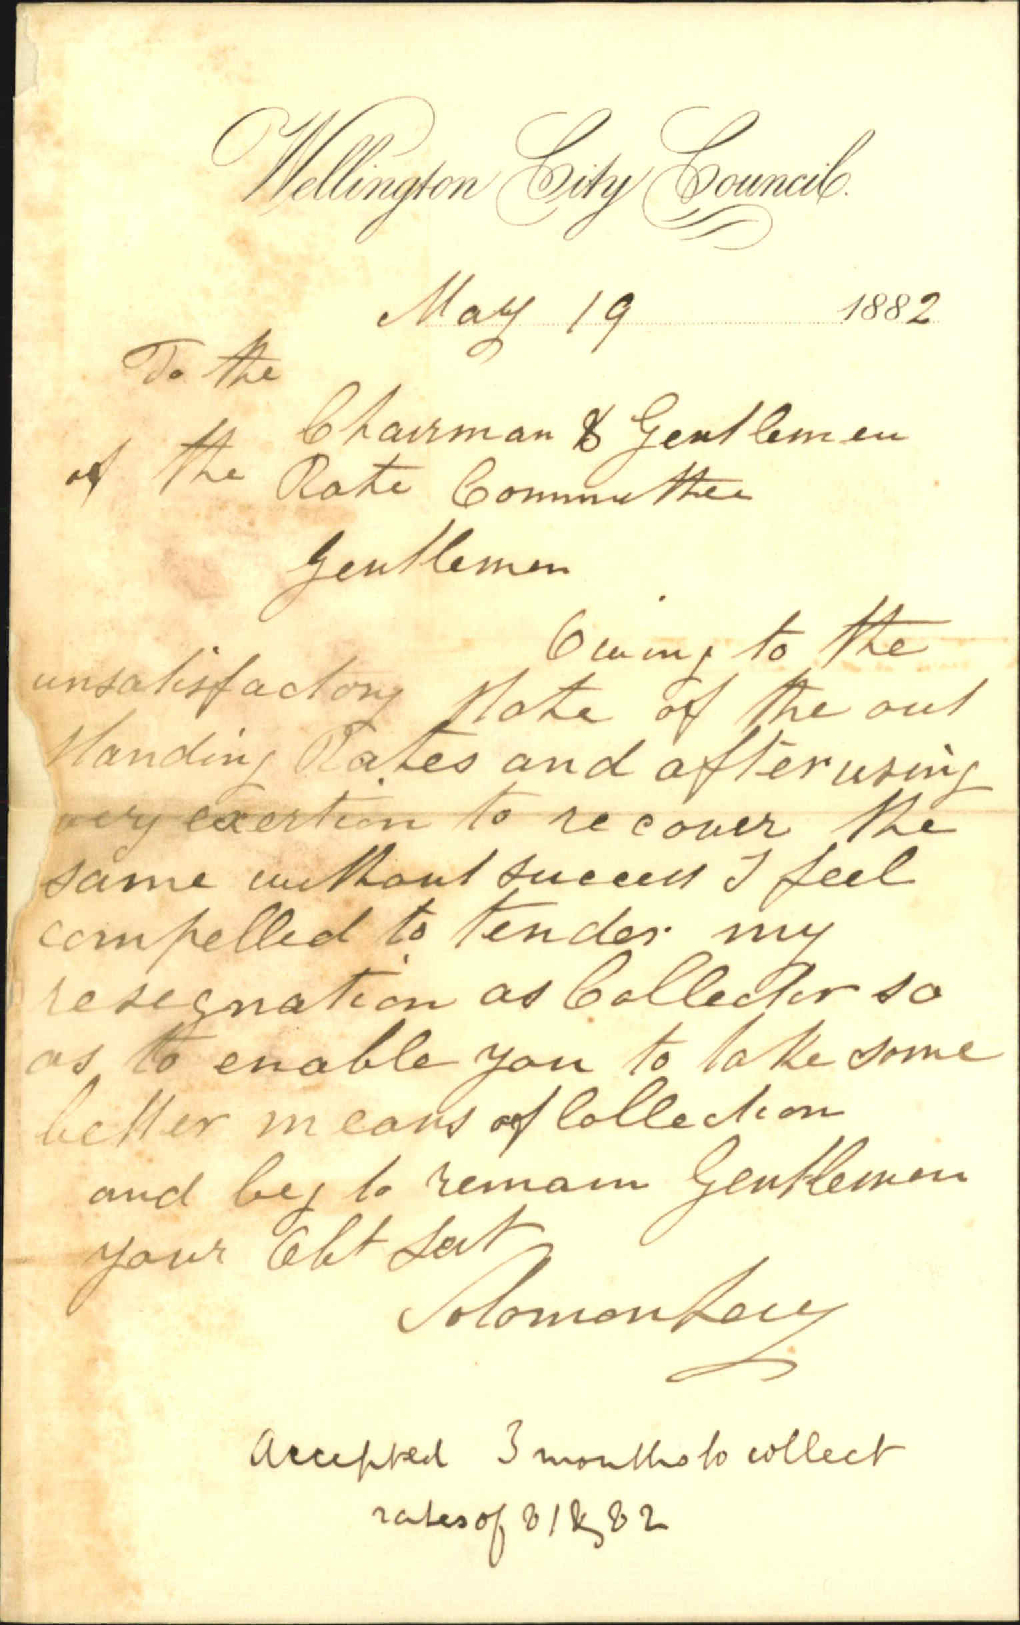 Wellington City Council.
May 19 1882
To the
Chairman & Gentlemen
of the Rate Committee
Gentlemen
Owing to the
unsatisfactory state of the out
standing Rates and after using
very exertion to recover the
same without success I feel
compelled to tender my
resegnation as Collector so
as to enable you to take some
better means of Collection
and beg to remain Gentlemen
your Obt Sert
Solomon Levy
Accepted 3 months to collect
rates of 81 & 82